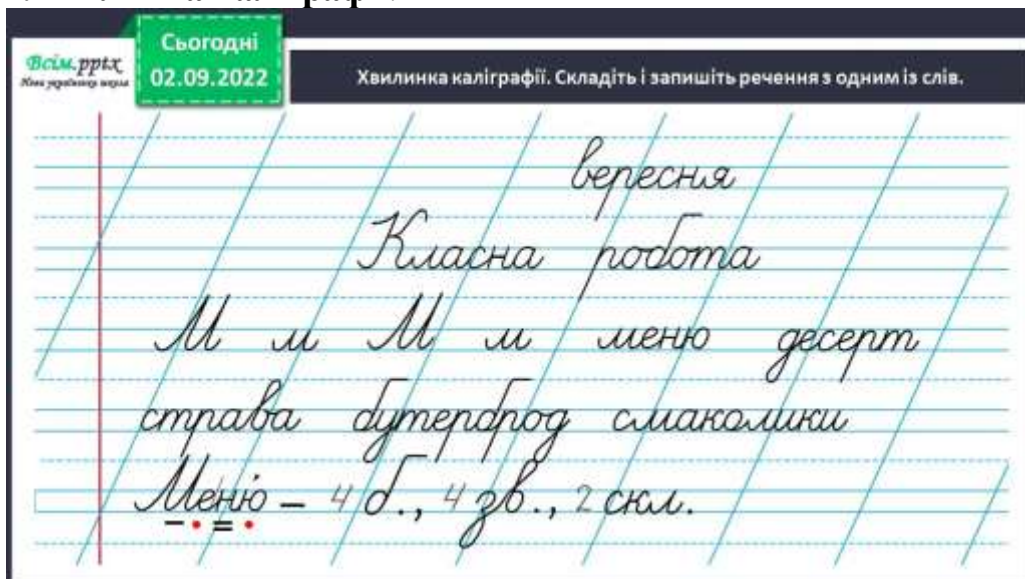 Сьогодні
Всім.pptx
Нова українська школа
02.09.2022
Хвилинка каліграфії. Складіть і запишіть речення з одним із слів.
вересня
Класна робота
М м М м меню десерт
страва бутерброд смаколики
Меню – 4 б., 4 зв., 2 скл.